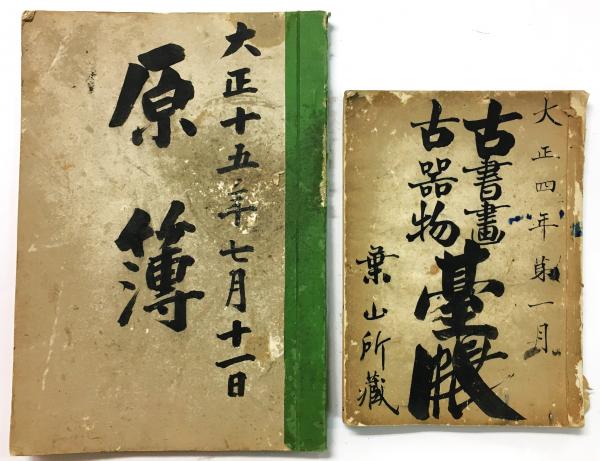 大正十五年七月十一日
原簿
大正四年第一月
古書畫
古器物
臺帳
葉山所藏